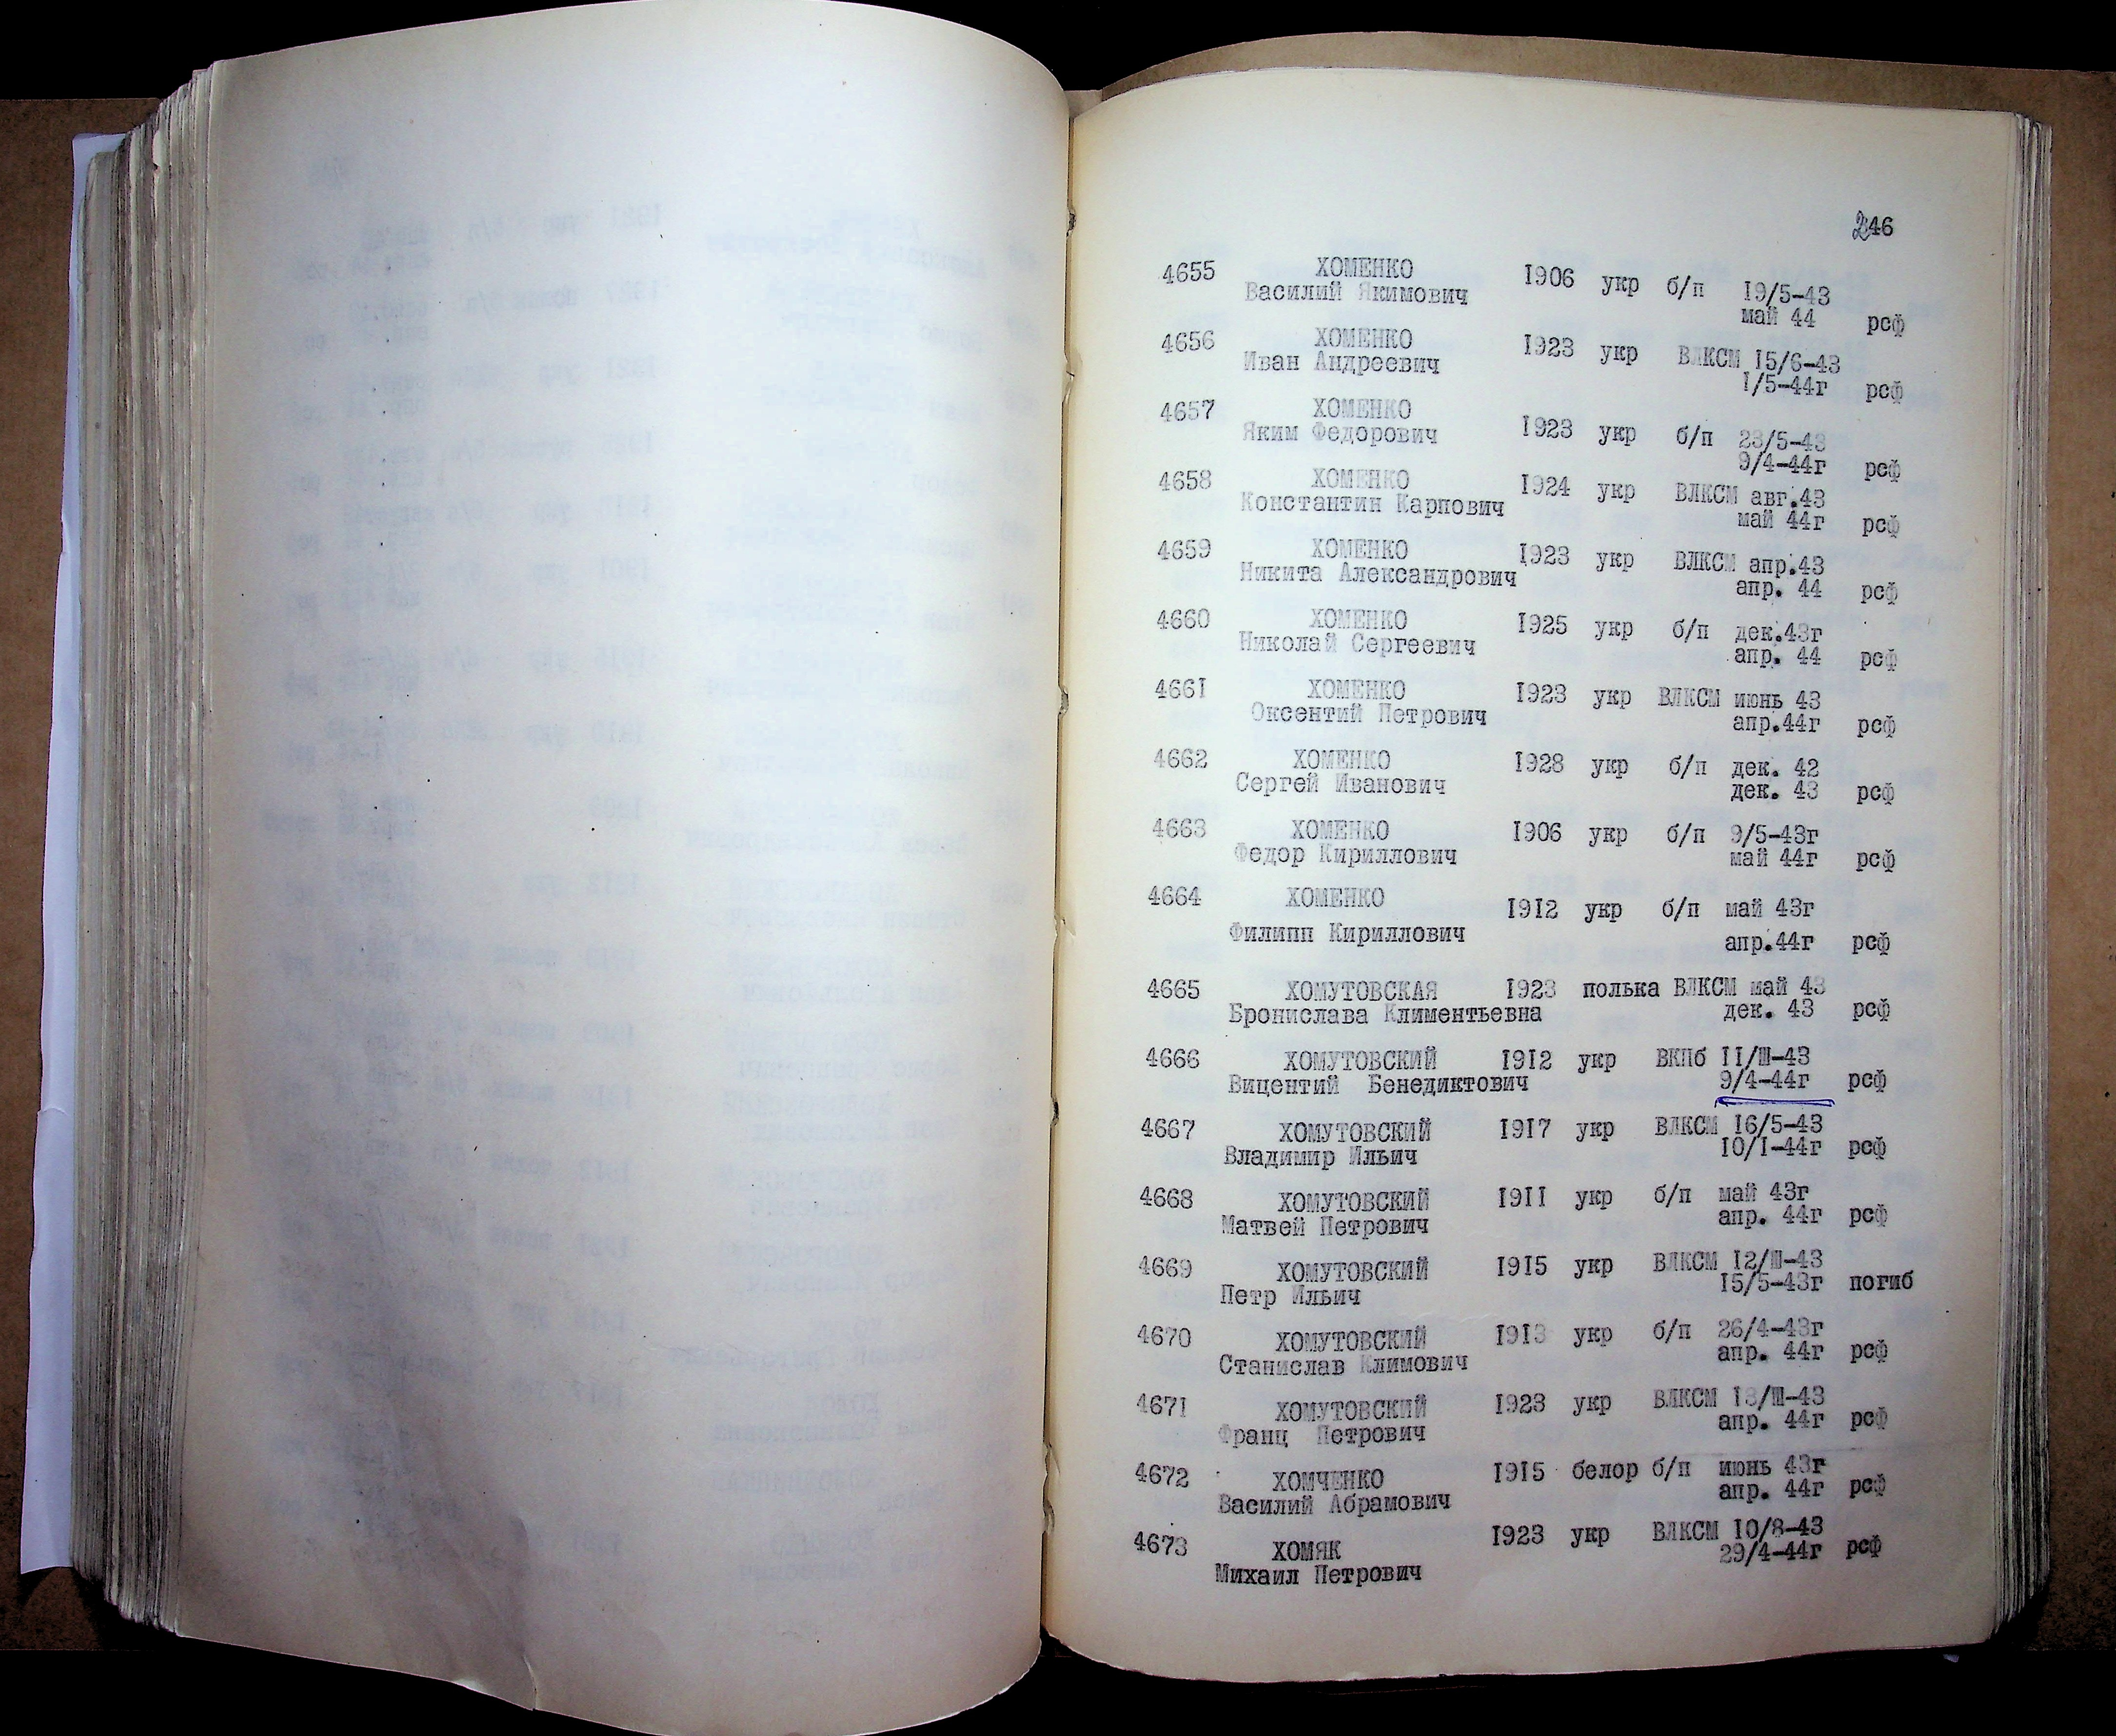 246
4655 ХОМЕНКО 1906 укр б/п 19/5-43
Василий Якимович май 44 рсф
4656 ХОМЕНКО 1923 укр ВЛКСМ 15/6-43
Иван Андреевич 1/5-44г рсф
4657 ХОМЕНКО 1923 укр б/п 23/5-43
Яким Федорович 9/4-44г рсф
4658 ХОМЕНКО 1924 укр ВЛКСМ авг.43
Константин Карпович май 44г рсф
4659 ХОМЕНКО 1923 укр ВЛКСМ апр.43
Никита Александрович апр. 44 рсф
4660 ХОМЕНКО 1925 укр б/п дек.43г
Николай Сергеевич апр. 44 рсф
4661 ХОМЕНКО 1923 укр ВЛКСМ июнь 43
Оксентий Петрович апр.44г рсф
4662 ХОМЕНКО 1928 укр б/п дек. 42
Сергей Иванович дек. 43 рсф
4663 ХОМЕНКО 1906 укр б/п 9/5-43г
Федор Кириллович май 44г рсф
4664 ХОМЕНКО 1912 укр б/п май 43г
Филипп Кириллович апр.44г рсф
4665 ХОМУТОВСКАЯ 1923 полька ВЛКСМ май 43
Бронислава Климентьевна дек. 43 рсф
4666 ХОМУТОВСКИЙ 1912 укр ВКПб 11/Ш-43
Вицентий Бенедиктович 9/4-44г рсф
4667 ХОМУТОВСКИЙ 1917 укр ВЛКСМ 16/5-43
Владимир Ильич 10/1-44г рсф
4668 ХОМУТОВСКИЙ 1911 укр б/п май 43г
Матвей Петрович апр. 44г рсф
4669 ХОМУТОВСКИЙ 1915 укр ВЛКСМ 12/Ш-43
Петр Ильич 15/5-43г погиб
4670 ХОМУТОВСКИЙ 1913 укр б/п 26/4-43г
Станислав Климович апр. 44г рсф
4671 ХОМУТОВСКИЙ 1923 укр ВЛКСМ 13/Ш-43
Франц Петрович апр. 44г рсф
4672 ХОМЧЕНКО 1915 белор б/п июнь 43г
Василий Абрамович апр. 44г рсф
4673 ХОМЯК 1923 укр ВЛКСМ 10/8-43
Михаил Петрович 29/4-44г рсф